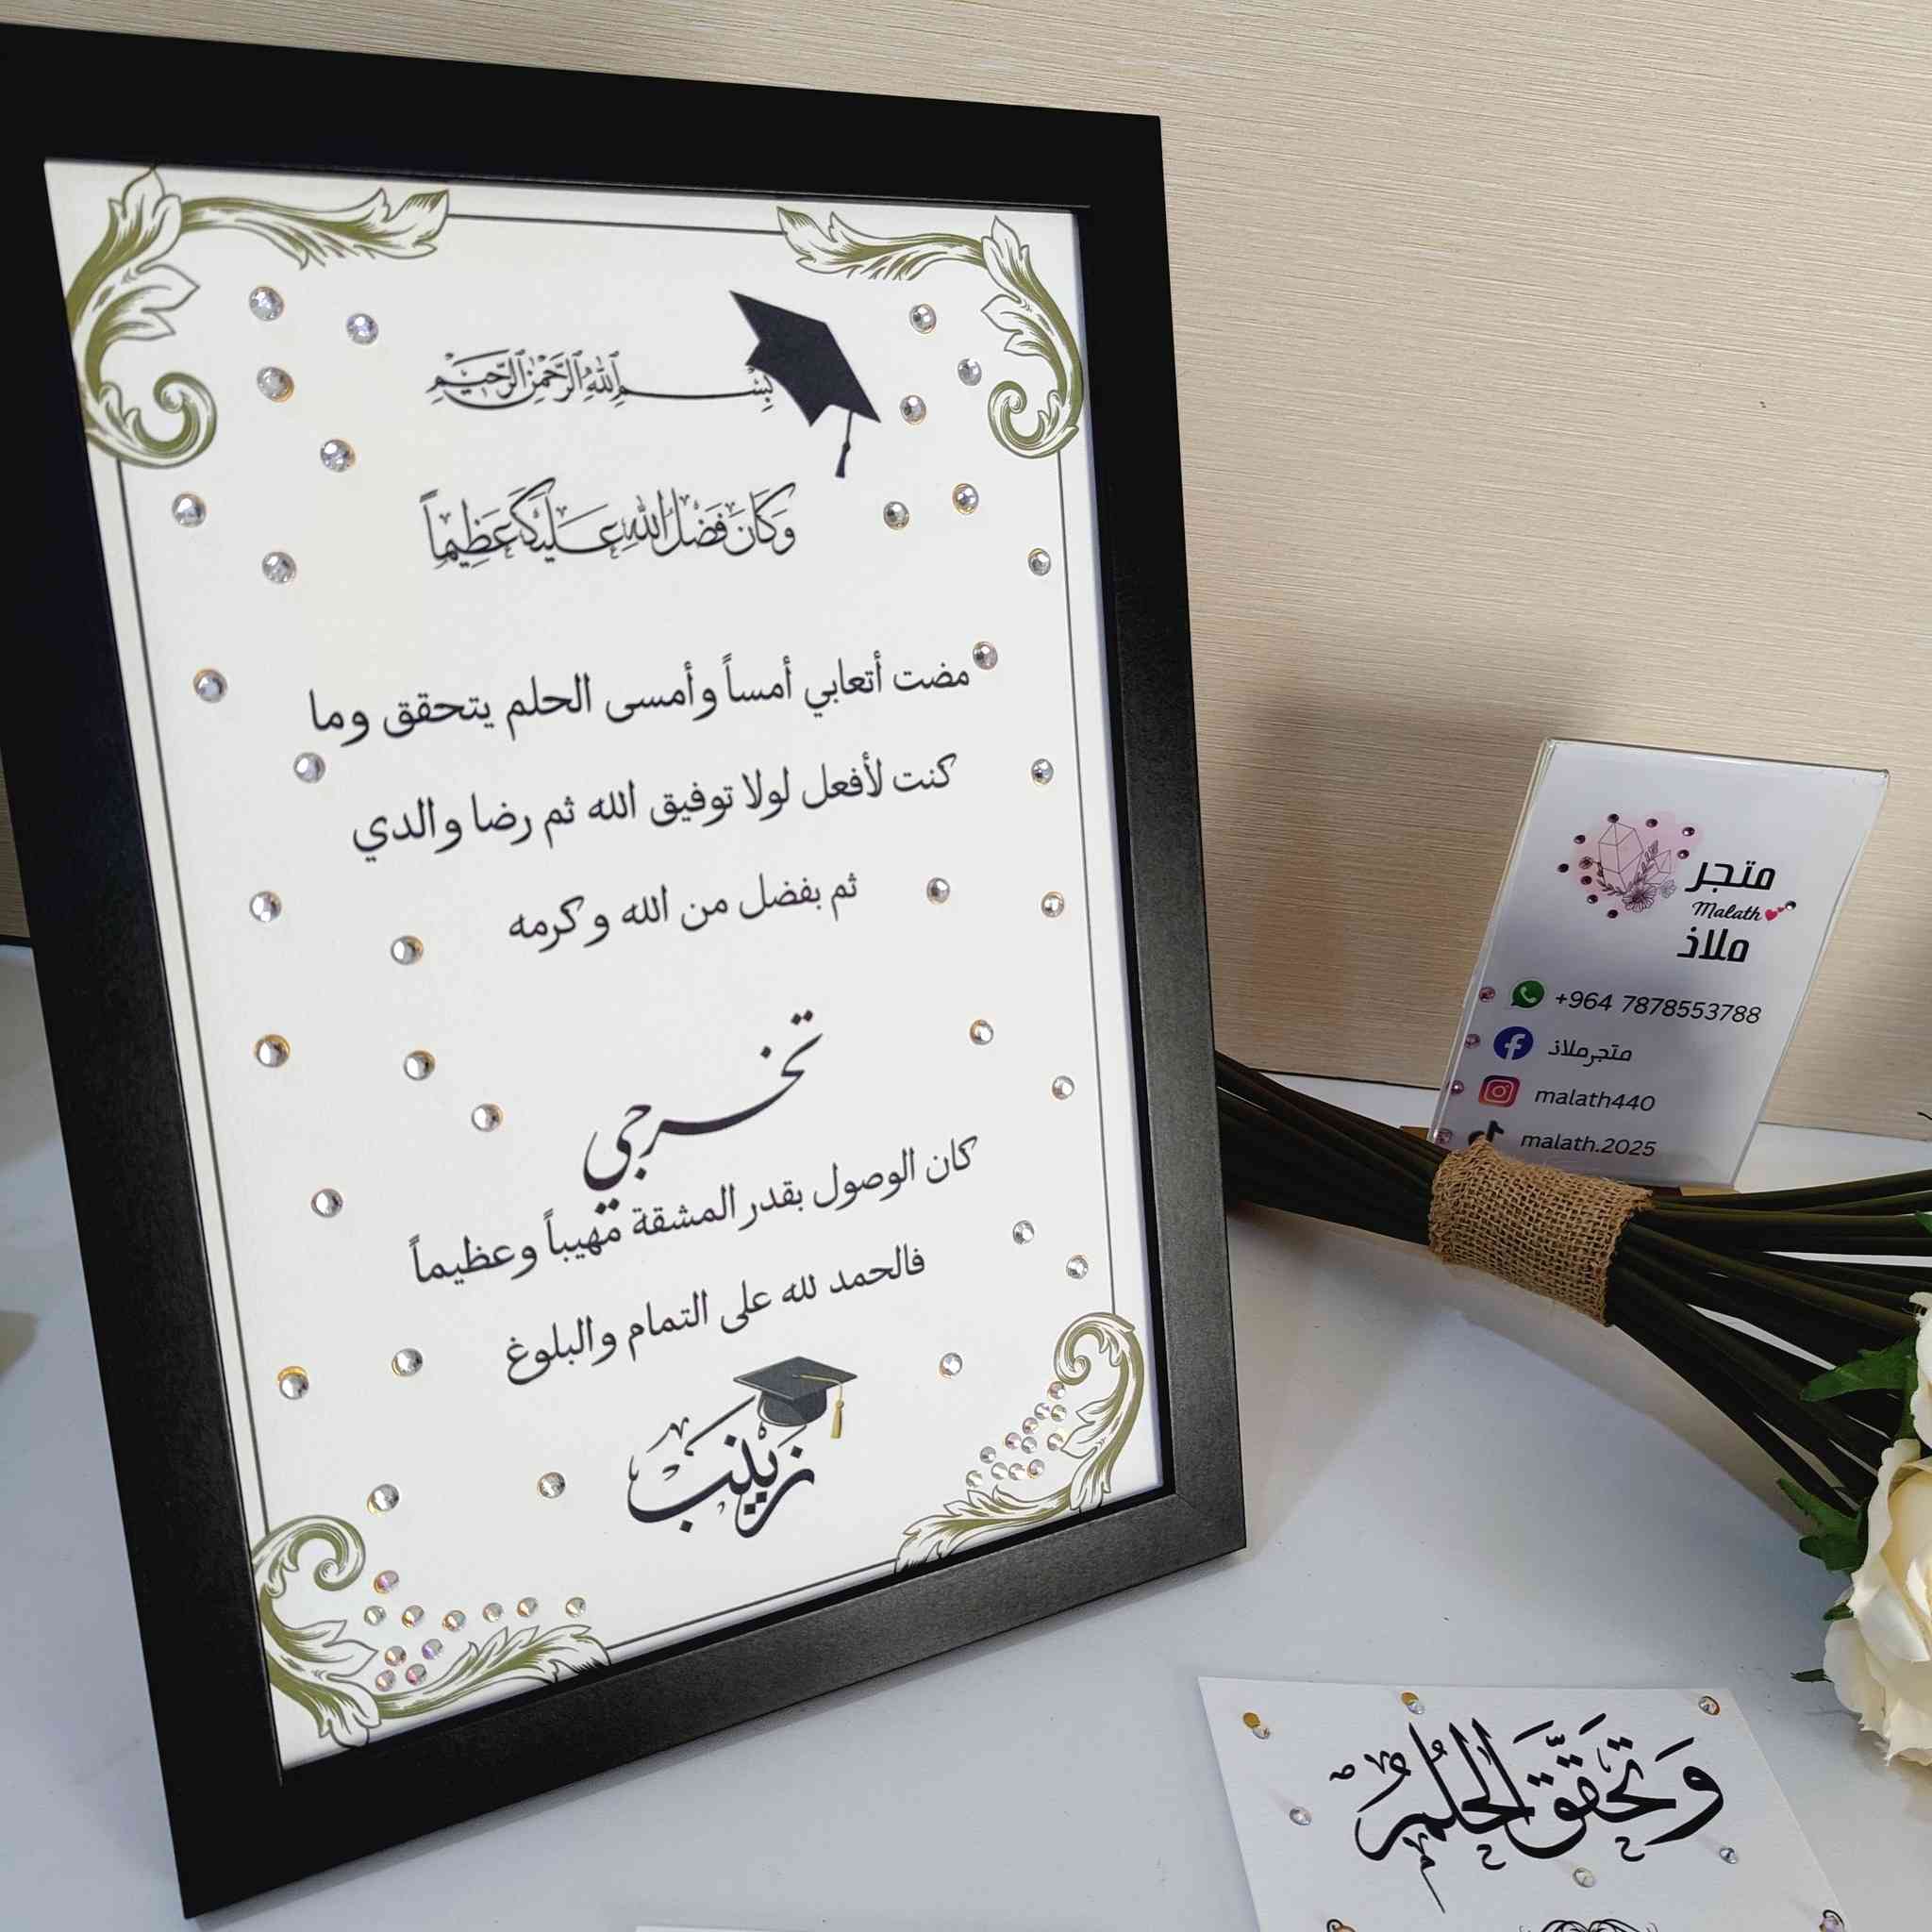 بِسْمِ اللهِ الرَّحْمٰنِ الرَّحِيْمِ
وَكَانَ فَضْلُ اللهِ عَلَيْكَ عَظِيْماً
مضت أتعابي أمساً وأمسى الحلم يتحقق وما
كنت لأفعل لولا توفيق الله ثم رضا والدي
ثم بفضل من الله وكرمه
تخرجي
كان الوصول بقدر المشقة مهيباً وعظيماً
فالحمد لله على التمام والبلوغ
زينب
متجر
Malath
ملاذ
+964 7878553788
متجر ملاذ
malath440
malath.2025
وَتَحَقَّقَ الحُلمُ